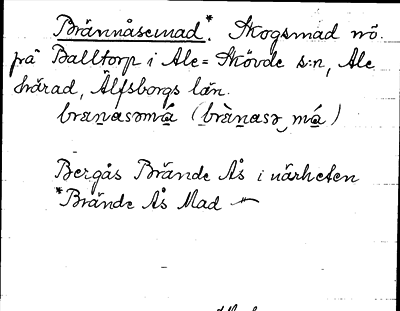 Brännåsemad*. Skogsmad nö.
från Balltorp i Ale-Skövde s:n, Ale
härad, Älfsborgs län.
branasəmá (brànasə má)
Bergås Brände Ås i närheten
*Brände Ås Mad